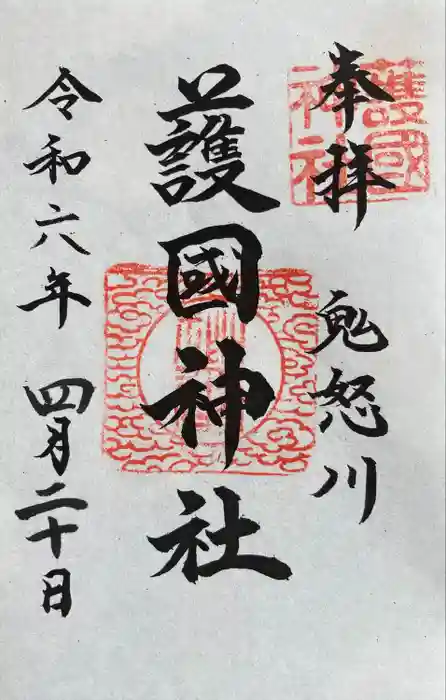 奉拝
鬼怒川
護國神社
護國神社
令和六年 四月二十日